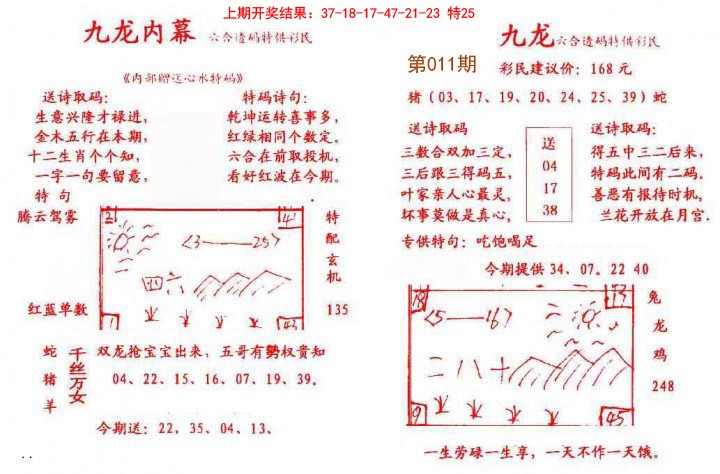 上期开奖结果: 37-18-17-47-21-23 特25
九龙内幕 六合透码特供彩民
《内部赠送心水特码》
送诗取码:
生意兴隆才禄进,
金木五行在本期,
十二生肖个个知,
一字一句要留意,
特码诗句:
乾坤运转喜事多,
红绿相同个数定。
六合在前取投机,
看好红波在今期。
特句
腾云驾雾
红蓝单数
2
41
<3——25>
四六
1
42
特配玄机
135
蛇
猪
羊
千丝万女
双龙抢宝宝出来, 五哥有勢权贵知
04、22、15、16、07、19、39。
今期送: 22, 35、04、13、
九龙 六合透码特供彩民
第011期
彩民建议价: 168 元
猪 (03、17、19、20、24、25、39) 蛇
送诗取码
三数合双加三定,
三后跟三得码五,
叶家亲人心最灵,
坏事莫做是真心,
送
04
17
38
送诗取码:
得五中三二后来,
特码此间有二码。
善恶有报待时机,
兰花开放在月宫.
专供特句: 吃饱喝足
今期提供 34、07。22 40
18
<5——16>
二八十
9
45
兔
龙
鸡
248
一生劳碌一生享, 一天不作一天饿。